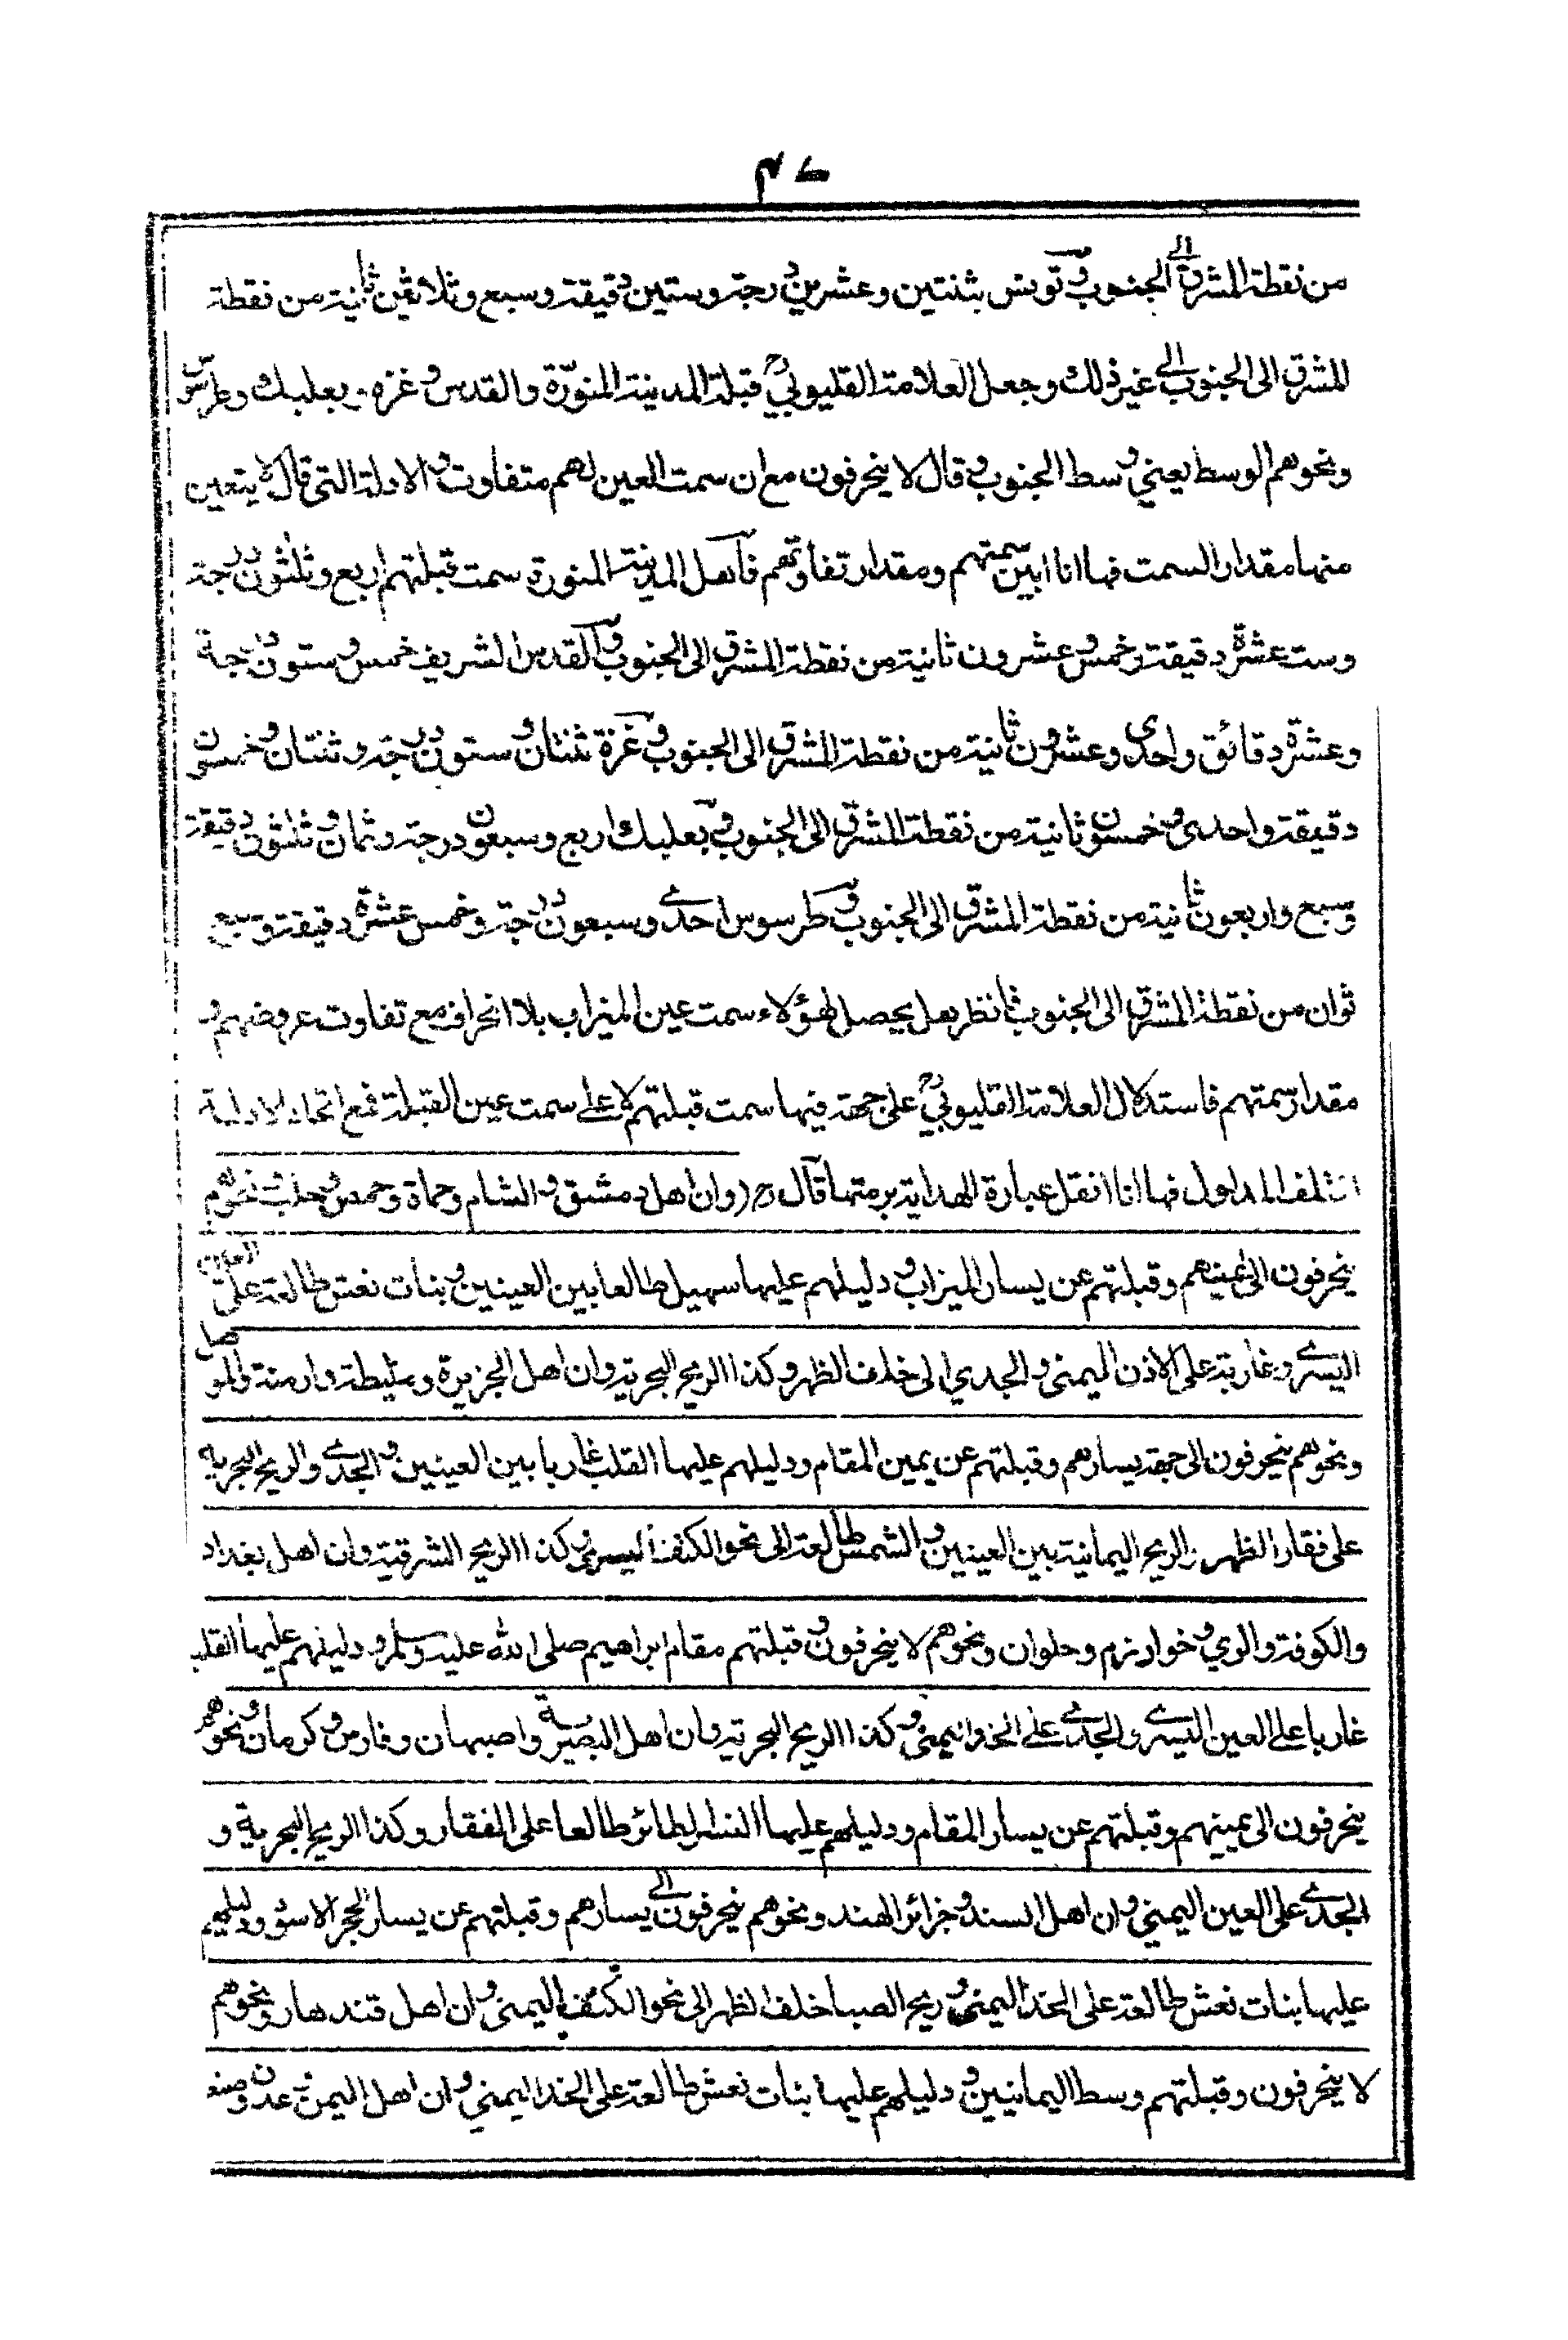 ٤٢
من نقطة المشرق الى الجنوب وفي تونس بثنتين وعشرين درجة وستين دقيقة وسبع وثلاثين ثانية من نقطة
المشرق الى الجنوب الى غير ذلك وجعل العلامة القليوبي رح قبلة المدينة المنورة والقدس وغزه وبعلبك وطرسوس
ونحوهم الوسط يعني وسط الجنوب وقال لا ينحرفون مع ان سمت العين لهم متفاوت والادلة التي قال لا يتعين
منها مقدار السمت فها انا ابين سمتهم ومقدار تفاوتهم فاهل المدينة المنورة سمت قبلتهم اربع وثلثون درجة
وست عشرة دقيقة وخمس وعشرون ثانية من نقطة المشرق الى الجنوب وفي القدس الشريف خمس وستون درجة
وعشرة دقائق واحدى وعشرون ثانية من نقطة المشرق الى الجنوب وفي غزة ثنتان وستون درجة وثنتان وخمسون
دقيقة واحدى وخمسون ثانية من نقطة المشرق الى الجنوب وفي بعلبك اربع وسبعون درجة وثمان وثلثون دقيقة
وسبع واربعون ثانية من نقطة المشرق الى الجنوب وفي طرسوس احدى وسبعون درجة وخمس عشرة دقيقة وتسع
ثوان من نقطة المشرق الى الجنوب فانظر بعل يحصل لهؤلاء سمت عين الميزاب بلا انحراف مع تفاوت عروضهم و
مقدار سمتهم فاستدلال العلامة القليوبي رح على جهة فيها سمت قبلتهم لا على سمت عين القبلة فمع اتحاد الادلة
اختلف المدلول فها انا انقل عبارة الهداية برمتها قال رح (وان اهل دمشق والشام وحماة وحمص وحلب ونحوهم
ينحرفون الى يمينهم وقبلتهم عن يسار الميزاب ودليلهم عليها سهيل طالعا بين العينين وبنات نعش طالعة على العين
اليسرى وغاربة على الاذن اليمنى والجدي الى خلف الظهر وكذا الريح البحرية وان اهل الجزيرة وملطية وارمنة والموصل
ونحوهم ينحرفون الى جهة يسارهم وقبلتهم عن يمين المقام ودليلهم عليها القلب غاربا بين العينين والجدى والريح البحرية
على فقار الظهر والريح اليمانية بين العينين والشمس طالعة الى نحو الكتف اليسرى وكذا الريح الشرقية وان اهل بغداد
والكوفة والري وخوارزم وحلوان ونحوهم لا ينحرفون وقبلتهم مقام ابراهيم صلى الله عليه وسلم ودليلهم عليها القلب
غاربا على العين اليسرى والجدى على الخد اليمنى وكذا الريح البحرية وان اهل البصرة واصبهان وفارس وكرمان ونحوهم
ينحرفون الى يمينهم وقبلتهم عن يسار المقام ودليلهم عليها النسر الطائر طالعا على الفقار وكذا الريح البحرية و
الجدى على العين اليمني وان اهل السند وجزائر الهند ونحوهم ينحرفون الى يسارهم وقبلتهم عن يسار الحجر الاسود ودليلهم
عليها بنات نعش طالعة على الخد اليمنى وريح الصبا خلف الظهر الى نحو الكتف اليمنى وان اهل قندهار ونحوهم
لا ينحرفون وقبلتهم وسط اليمانيين ودليلهم عليها بنات نعش طالعة على الخد اليمني وان اهل اليمن عدن وصنعا